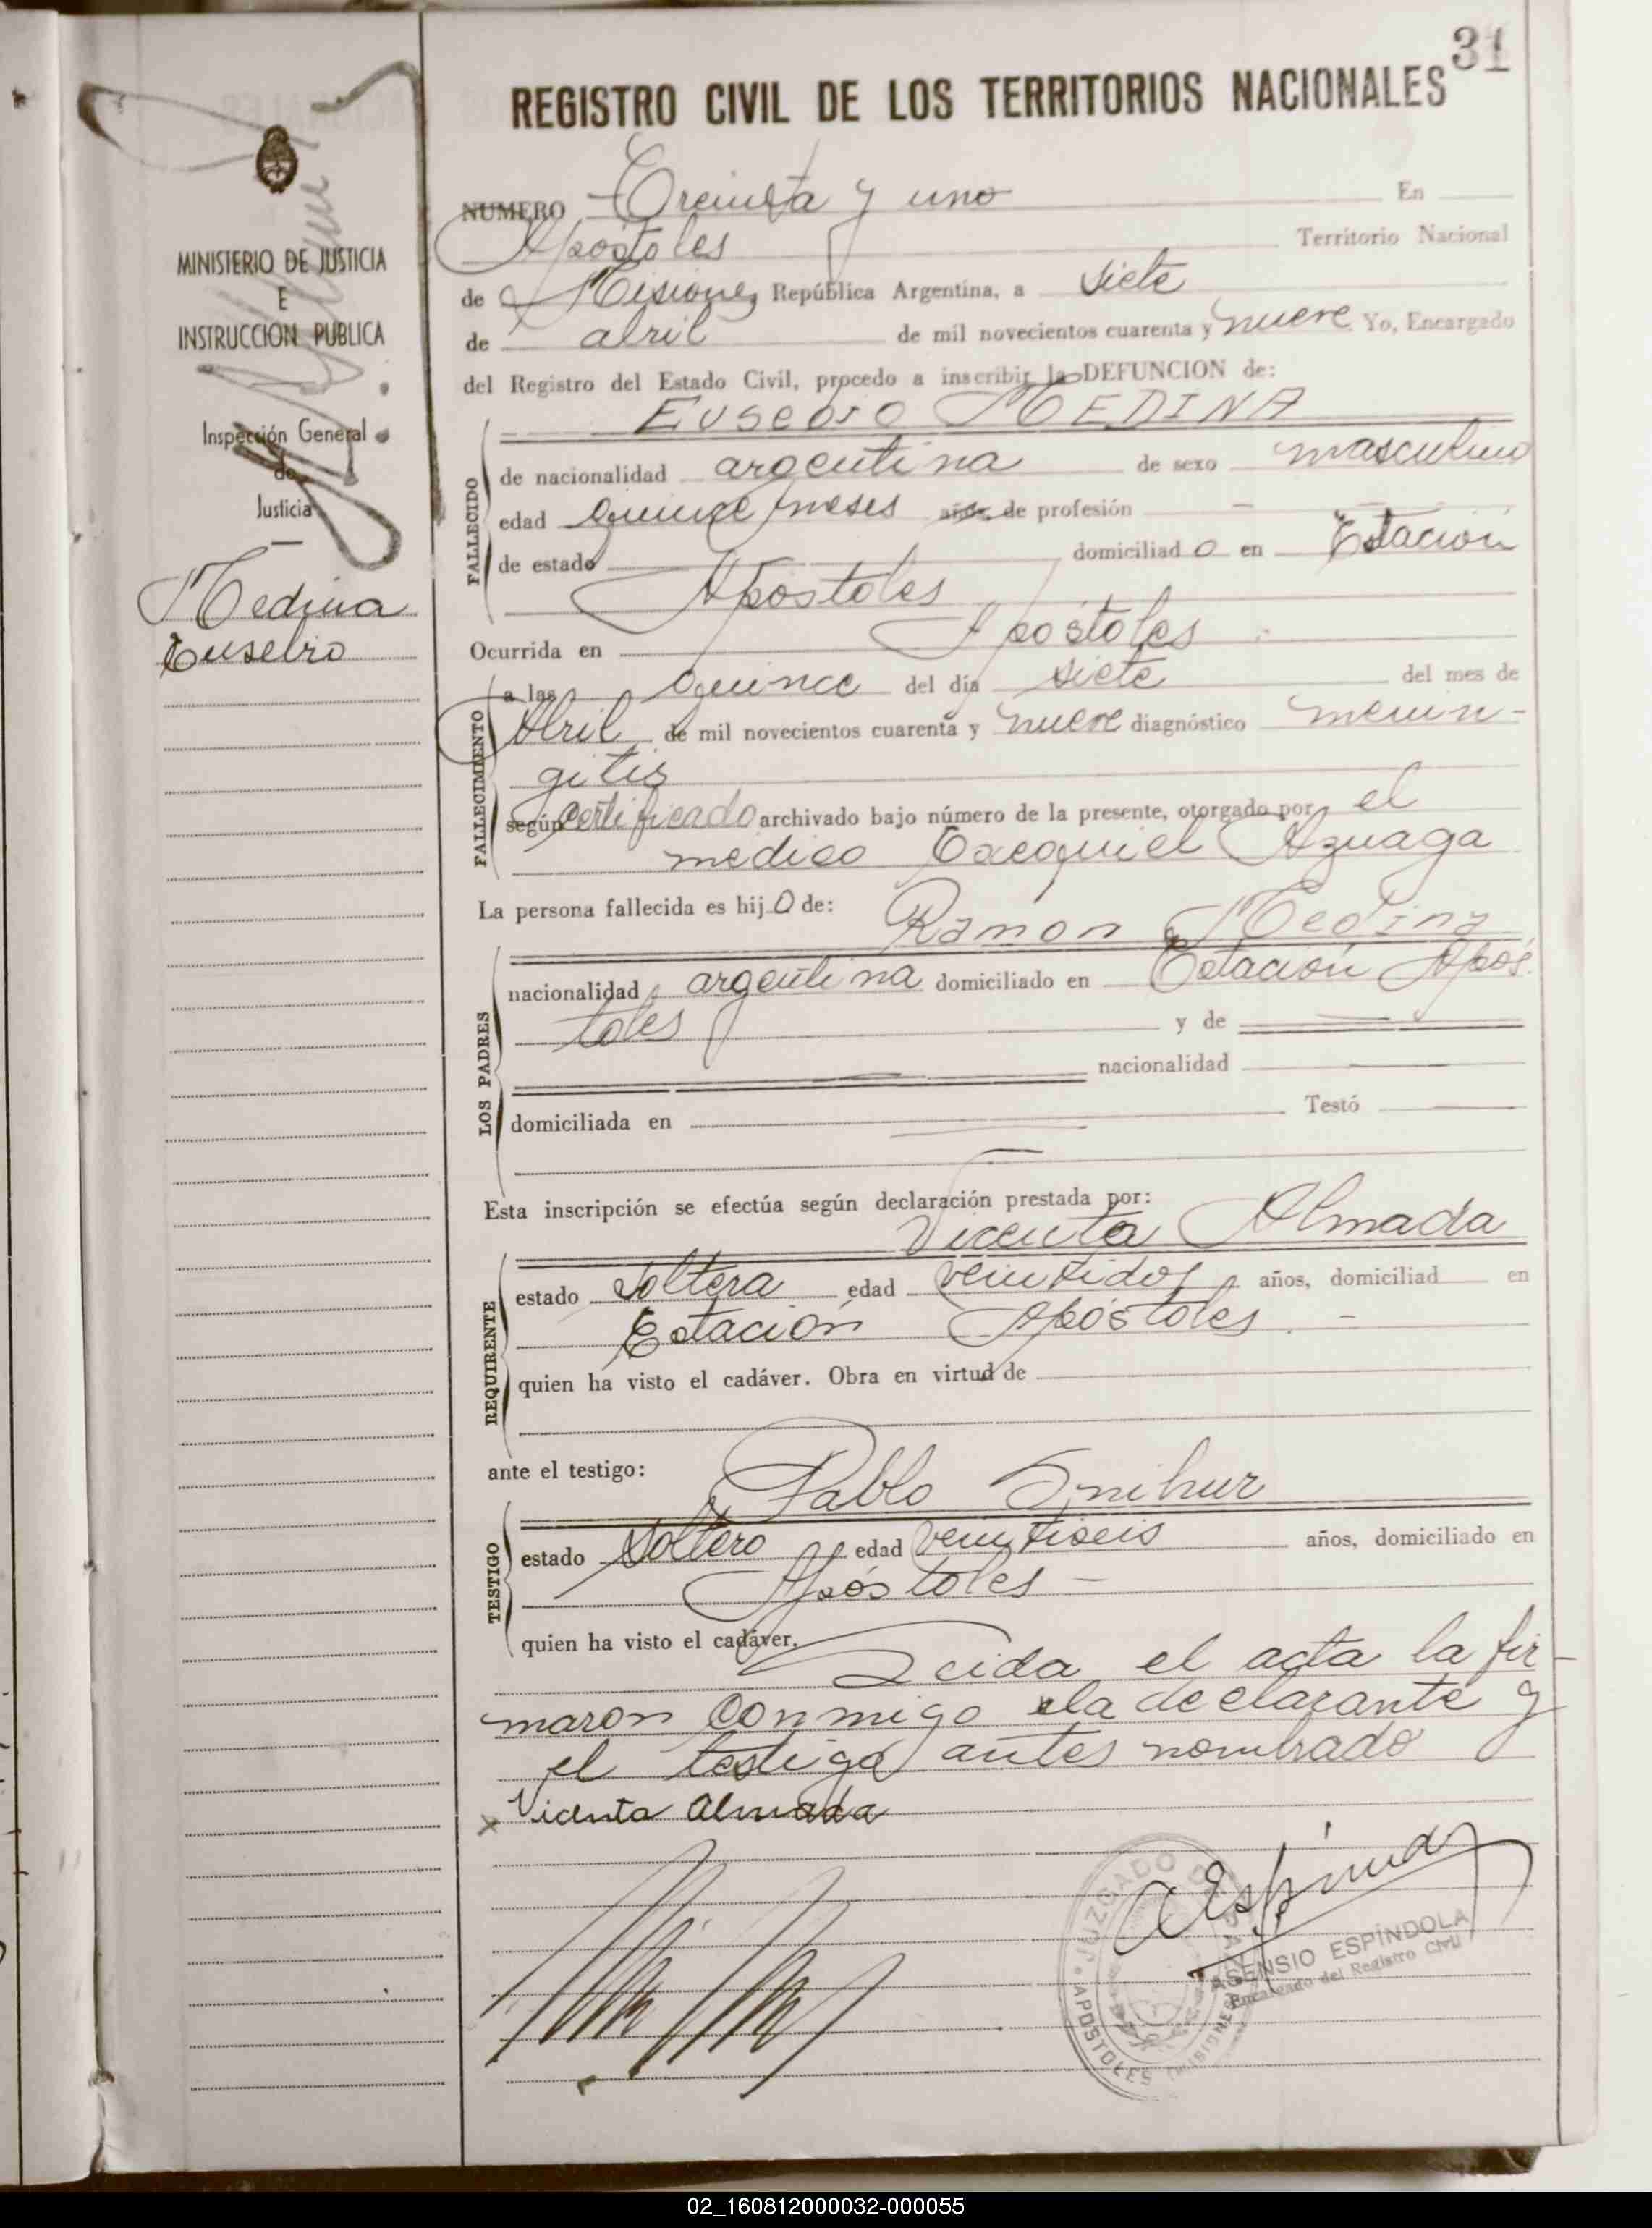 31
REGISTRO CIVIL DE LOS TERRITORIOS NACIONALES
MINISTERIO DE JUSTICIA
E
INSTRUCCION PUBLICA
Inspección General
de
Justicia
Medina
Eusebio
NUMERO Treinta y uno En
Apóstoles Territorio Nacional
de Misiones República Argentina, a siete
de abril de mil novecientos cuarenta y nueve Yo, Encargado
del Registro del Estado Civil, procedo a inscribir la DEFUNCION de:
Eusebio MEDINA
FALLECIDO
de nacionalidad argentina de sexo masculino
edad quince meses años de profesión —
de estado domiciliado en Estación
Apóstoles
Ocurrida en Apóstoles
FALLECIMIENTO
a las quince del día siete del mes de
Abril de mil novecientos cuarenta y nueve diagnóstico menin-
gitis
según certificado archivado bajo número de la presente, otorgado por el
medico Exequiel Azuaga
La persona fallecida es hijo de: Ramon Medina
LOS PADRES
nacionalidad argentina domiciliado en Estación Após-
toles y de
nacionalidad
domiciliada en Testó
Esta inscripción se efectúa según declaración prestada por:
Vicenta Almada
REQUIRENTE
estado Soltera edad veintidos años, domiciliad en
Estación Apóstoles. —
quien ha visto el cadáver. Obra en virtud de
ante el testigo: Pablo Snihur
TESTIGO
estado Soltero edad veintiseis años, domiciliado en
Apóstoles —
quien ha visto el cadáver. Leida el acta la fir-
maron conmigo la declarante y
el testigo antes nombrado
x Vicenta Almada
JUZGADO DE PAZ
APOSTOLES (MISIONES)
ASENSIO ESPÍNDOLA
Encargado del Registro Civil
02_160812000032-000055